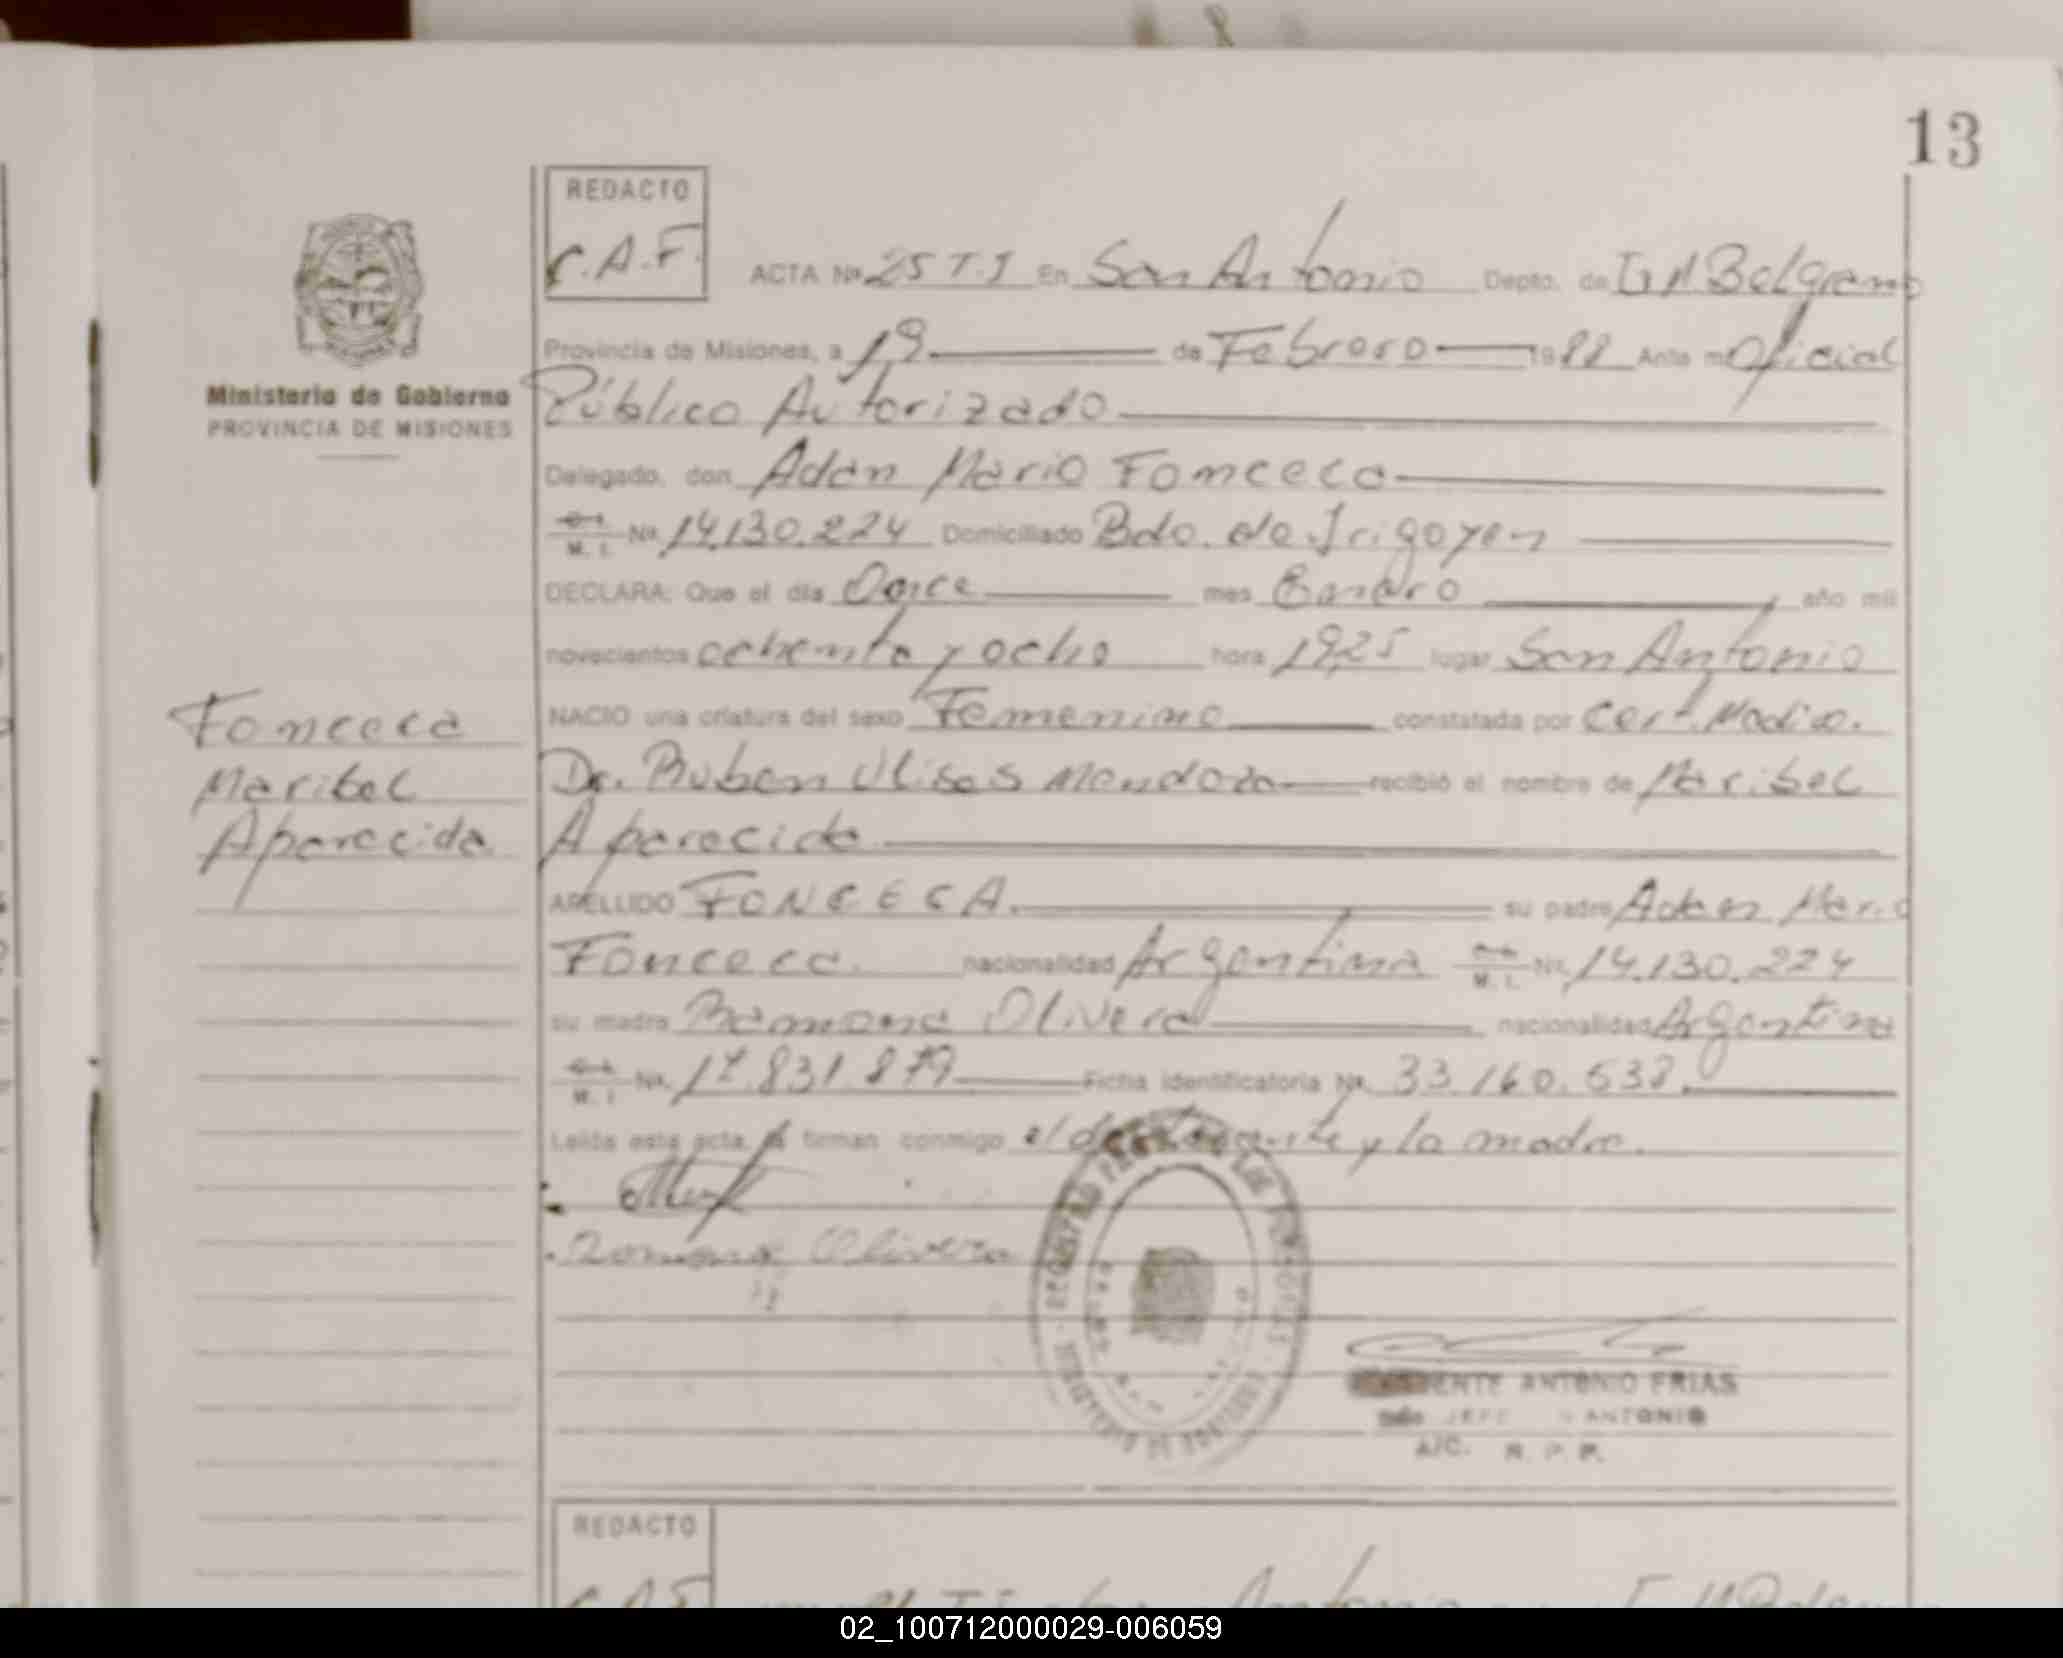 13
REDACTO
C.A.F.
ACTA Nº 25 T.I En San Antonio Depto. de Gl M Belgrano
Provincia de Misiones, a 19 de Febrero 1988 Ante mi Oficial
Público Autorizado
Delegado, don Adan Mario Fonceca
M. I. Nº 14.130.224 Domiciliado Bdo. de Irigoyen
DECLARA: Que el día Once mes Enero año mil
novecientos ochenta y ocho hora 19,25 lugar San Antonio
NACIO una criatura del sexo Femenino constatada por Cert. Medico.
Dr. Ruben Ulises Mendoza recibió el nombre de Maribel
Aparecida
APELLIDO FONCECA. su padre Adan Mario
Fonceca. nacionalidad Argentina M. I. Nº 14.130.224
su madre Ramona Olivera nacionalidad Argentina
M. I. Nº 17.831.879 Ficha identificatoria Nº 33.160.538.
Leída esta acta, la firman conmigo el declarante y la madre.
Ramona Olivera
Ministerio de Gobierno
PROVINCIA DE MISIONES
Fonceca
Maribel
Aparecida
REGISTRO DE LAS PERSONAS
MINISTERIO DE GOBIERNO
ANTONIO FRIAS
JEFE ANTONIO
A/C. R. P. P.
REDACTO
C.A.F.
02_100712000029-006059